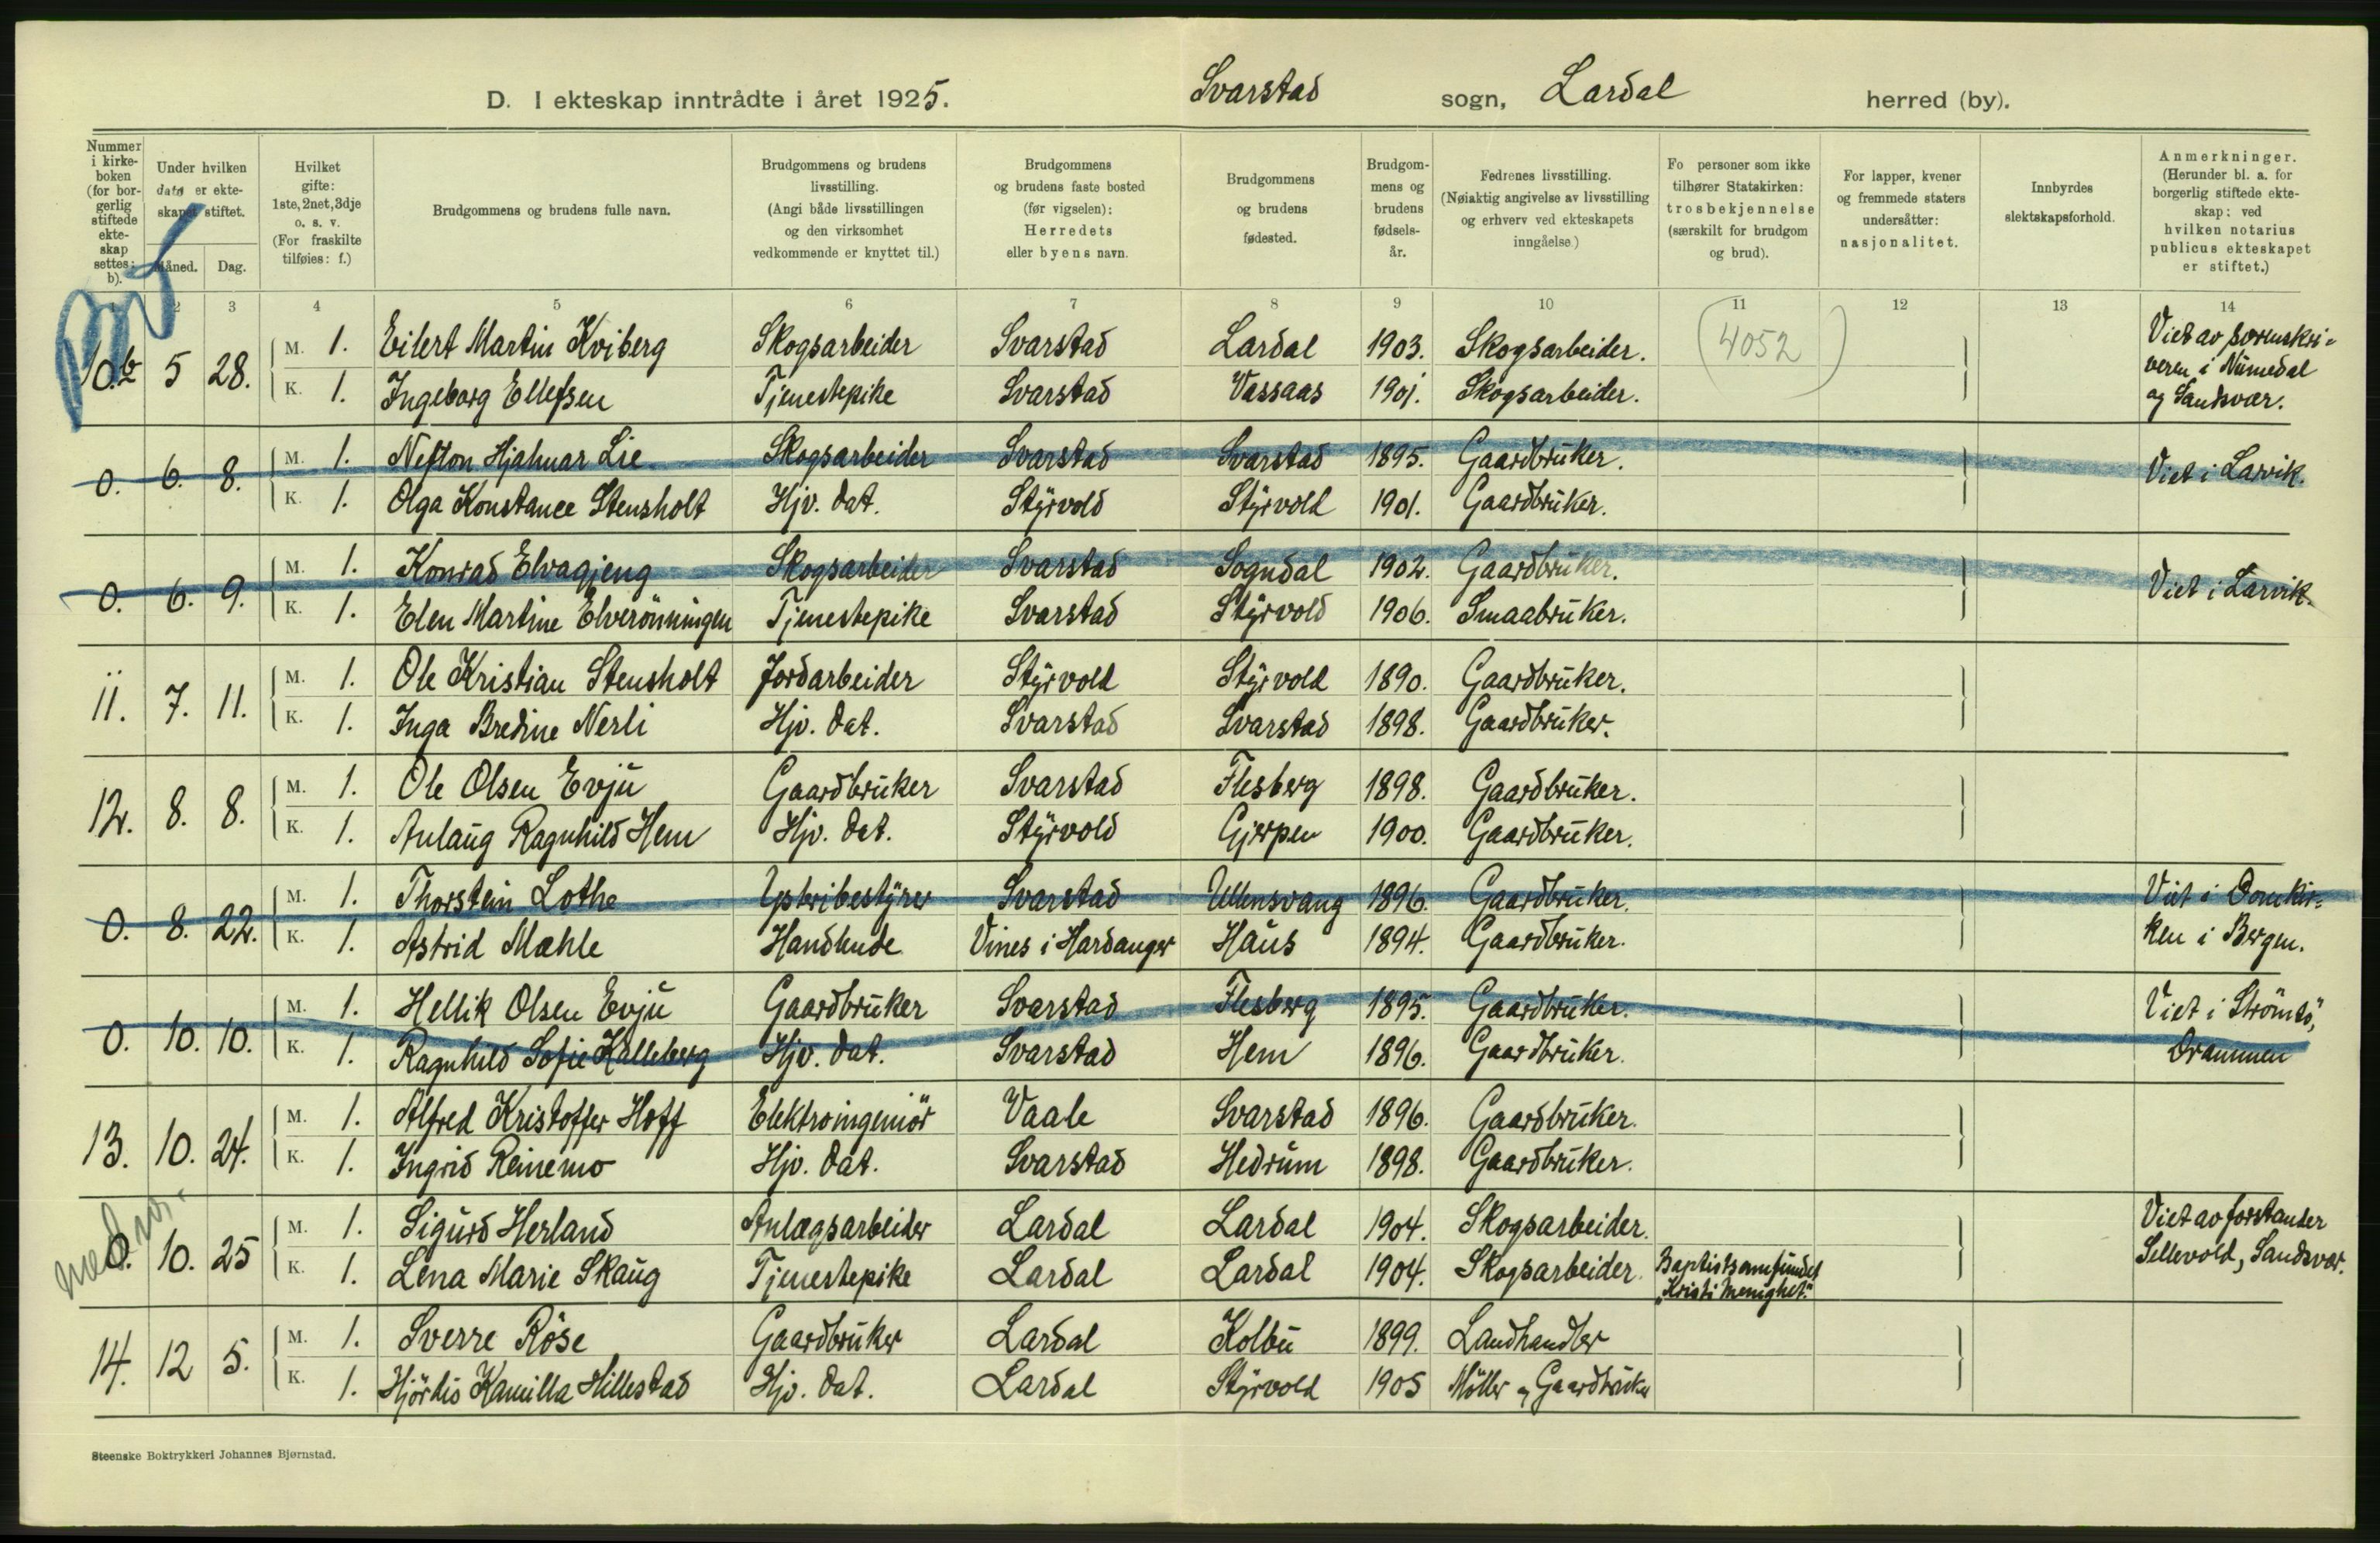 D. I ekteskap inntrådte i året 1925. Svarstad sogn, Lardal herred (by).
Nummer i kirkeboken (for borgerlig stiftede ekteskap settes: b).
Under hvilken dato er ekteskapet stiftet.
Måned. Dag.
Hvilket gifte: 1ste, 2net, 3dje o. s. v. (For fraskilte tilføies: f.)
Brudgommens og brudens fulle navn.
Brudgommens og brudens livsstilling. (Angi både livsstillingen og den virksomhet vedkommende er knyttet til.)
Brudgommens og brudens faste bosted (før vigselen): Herredets eller byens navn.
Brudgommens og brudens fødested.
Brudgommens og brudens fødselsår.
Fedrenes livsstilling. (Nøiaktig angivelse av livsstilling og erhverv ved ekteskapets inngåelse.)
Fo personer som ikke tilhører Statskirken: trosbekjennelse (særskilt for brudgom og brud).
For lapper, kvener og fremmede staters undersåtter: nasjonalitet.
Innbyrdes slektskapsforhold.
Anmerkninger. (Herunder bl. a. for borgerlig stiftede ekteskap: ved hvilken notarius publicus ekteskapet er stiftet.)
1 2 3 4 5 6 7 8 9 10 11 12 13 14
10b 5 28. M. 1. Eilert Martin Kviberg Skogsarbeider Svarstad Lardal 1903. Skogsarbeider. (4052) Viet av sorenskriveren i Numedal og Sandsvær.
K. 1. Ingeborg Ellefsen Tjenestepike Svarstad Vassaas 1901. Skogsarbeider.
0. 6. 8. M. 1. Nefton Hjalmar Lie Skogsarbeider Svarstad Svarstad 1895. Gaardbruker. Viet i Larvik.
K. 1. Olga Konstance Stensholt Hjv. dat. Styrvold Styrvold 1901. Gaardbruker.
0. 6. 9. M. 1. Konrad Elvagjeng Skogsarbeider Svarstad Sogndal 1902. Gaardbruker. Viet i Larvik.
K. 1. Elen Martine Elverönningen Tjenestepike Svarstad Styrvold 1906. Smaabruker.
11. 7. 11. M. 1. Ole Kristian Stensholt Jordarbeider Styrvold Styrvold 1890. Gaardbruker.
K. 1. Inga Bredine Nerli Hjv. dat. Svarstad Svarstad 1898. Gaardbruker.
12. 8. 8. M. 1. Ole Olsen Evju Gaardbruker Svarstad Flesberg 1898. Gaardbruker.
K. 1. Anlaug Ragnhild Hem Hjv. dat. Styrvold Gjerpen 1900. Gaardbruker.
0. 8. 22. M. 1. Thorstein Lothe Ysteribestyrer Svarstad Ullensvang 1896. Gaardbruker. Viet i Domkirken i Bergen.
K. 1. Astrid Mæhle Handlende Vines i Hardanger Haus 1894. Gaardbruker.
0. 10. 10. M. 1. Hellik Olsen Evju Gaardbruker Svarstad Flesberg 1895. Gaardbruker. Viet i Strömsö, Drammen
K. 1. Ragnhild Sofie Kalleberg Hjv. dat. Svarstad Hem 1896. Gaardbruker.
13. 10. 24. M. 1. Alfred Kristoffer Hoff Elektroingeniör Vaale Svarstad 1896. Gaardbruker.
K. 1. Ingrid Reinemo Hjv. dat. Svarstad Hedrum 1898. Gaardbruker.
0. 10. 25 M. 1. Sigurd Herland Anlægsarbeider Lardal Lardal 1904. Skogsarbeider. Viet av forstander Sellevold, Sandsvær.
K. 1. Lena Marie Skaug Tjenestepike Lardal Lardal 1904. Skogsarbeider. Baptistsamfundet „Kristi Menighet."
14. 12 5. M. 1. Sverre Röse Gaardbruker Lardal Kolbu 1899. Landhandler
K. 1. Hjördis Kamilla Hillestad Hjv. dat. Lardal Styrvold 1905 Möller og Gaardbruker
Steenske Boktrykkeri Johannes Bjørnstad.